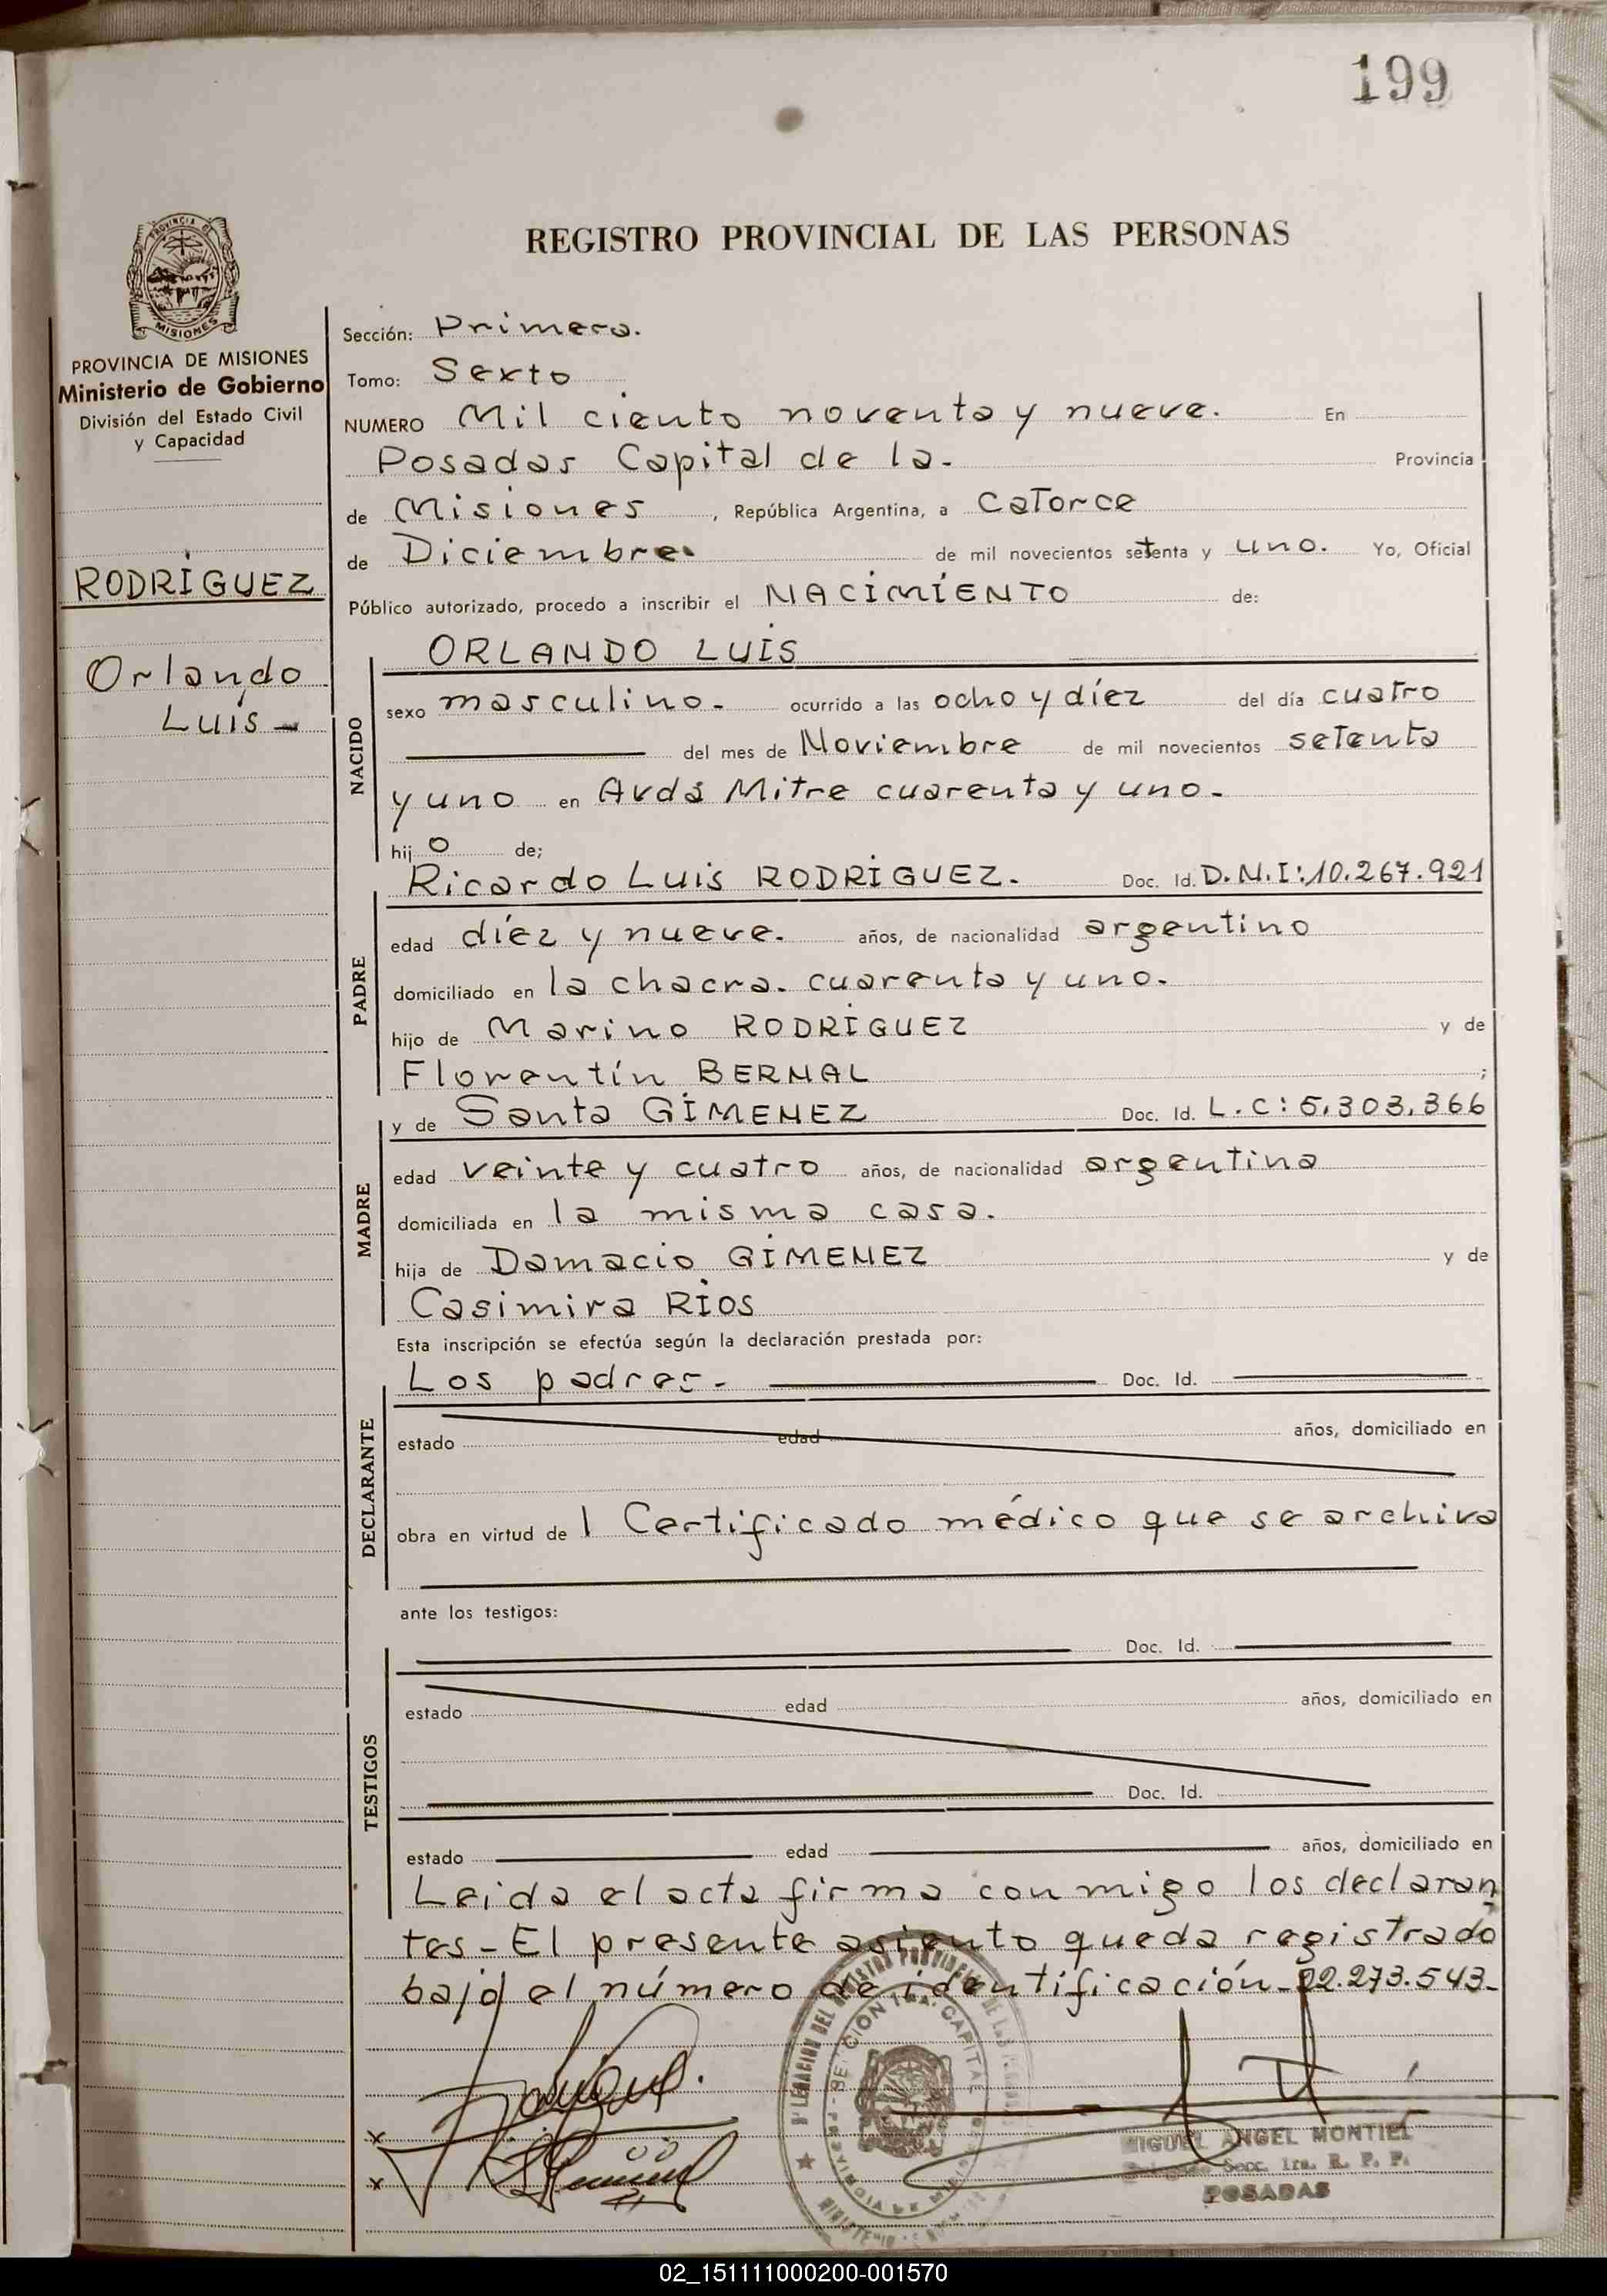 199
PROVINCIA DE MISIONES
REGISTRO PROVINCIAL DE LAS PERSONAS
PROVINCIA DE MISIONES
Ministerio de Gobierno
División del Estado Civil
y Capacidad
RODRÍGUEZ
Orlando
Luis -
Sección: Primera.
Tomo: Sexto
NUMERO Mil ciento noventa y nueve. En
Posadas Capital de la. Provincia
de Misiones, República Argentina, a Catorce
de Diciembre. de mil novecientos setenta y uno. Yo, Oficial
Público autorizado, procedo a inscribir el NACIMIENTO de:
ORLANDO LUIS
NACIDO
sexo masculino. ocurrido a las ocho y díez del día cuatro
del mes de Noviembre de mil novecientos setenta
y uno en Avda Mitre cuarenta y uno.
hij o de;
Ricardo Luis RODRIGUEZ. Doc. Id. D.N.I:10.267.921
PADRE
edad díez y nueve. años, de nacionalidad argentino
domiciliado en la chacra. cuarenta y uno.
hijo de Marino RODRIGUEZ y de
Florentín BERNAL ;
y de Santa GIMENEZ Doc. Id. L.C: 5.303.366
MADRE
edad veinte y cuatro años, de nacionalidad argentina
domiciliada en la misma casa.
hija de Damacio GIMENEZ y de
Casimira RIOS
Esta inscripción se efectúa según la declaración prestada por:
Los padres. Doc. Id.
DECLARANTE
estado edad años, domiciliado en
obra en virtud de 1 Certificado médico que se archiva
ante los testigos:
Doc. Id.
TESTIGOS
estado edad años, domiciliado en
Doc. Id.
estado edad años, domiciliado en
Leida el acta firma conmigo los declaran
tes - El presente asiento queda registrado
bajo el número de identificación - 22.273.543 -
x
x
MIGUEL ANGEL MONTIEL
Secc. 1ra. R. P. P.
POSADAS
02_151111000200-001570